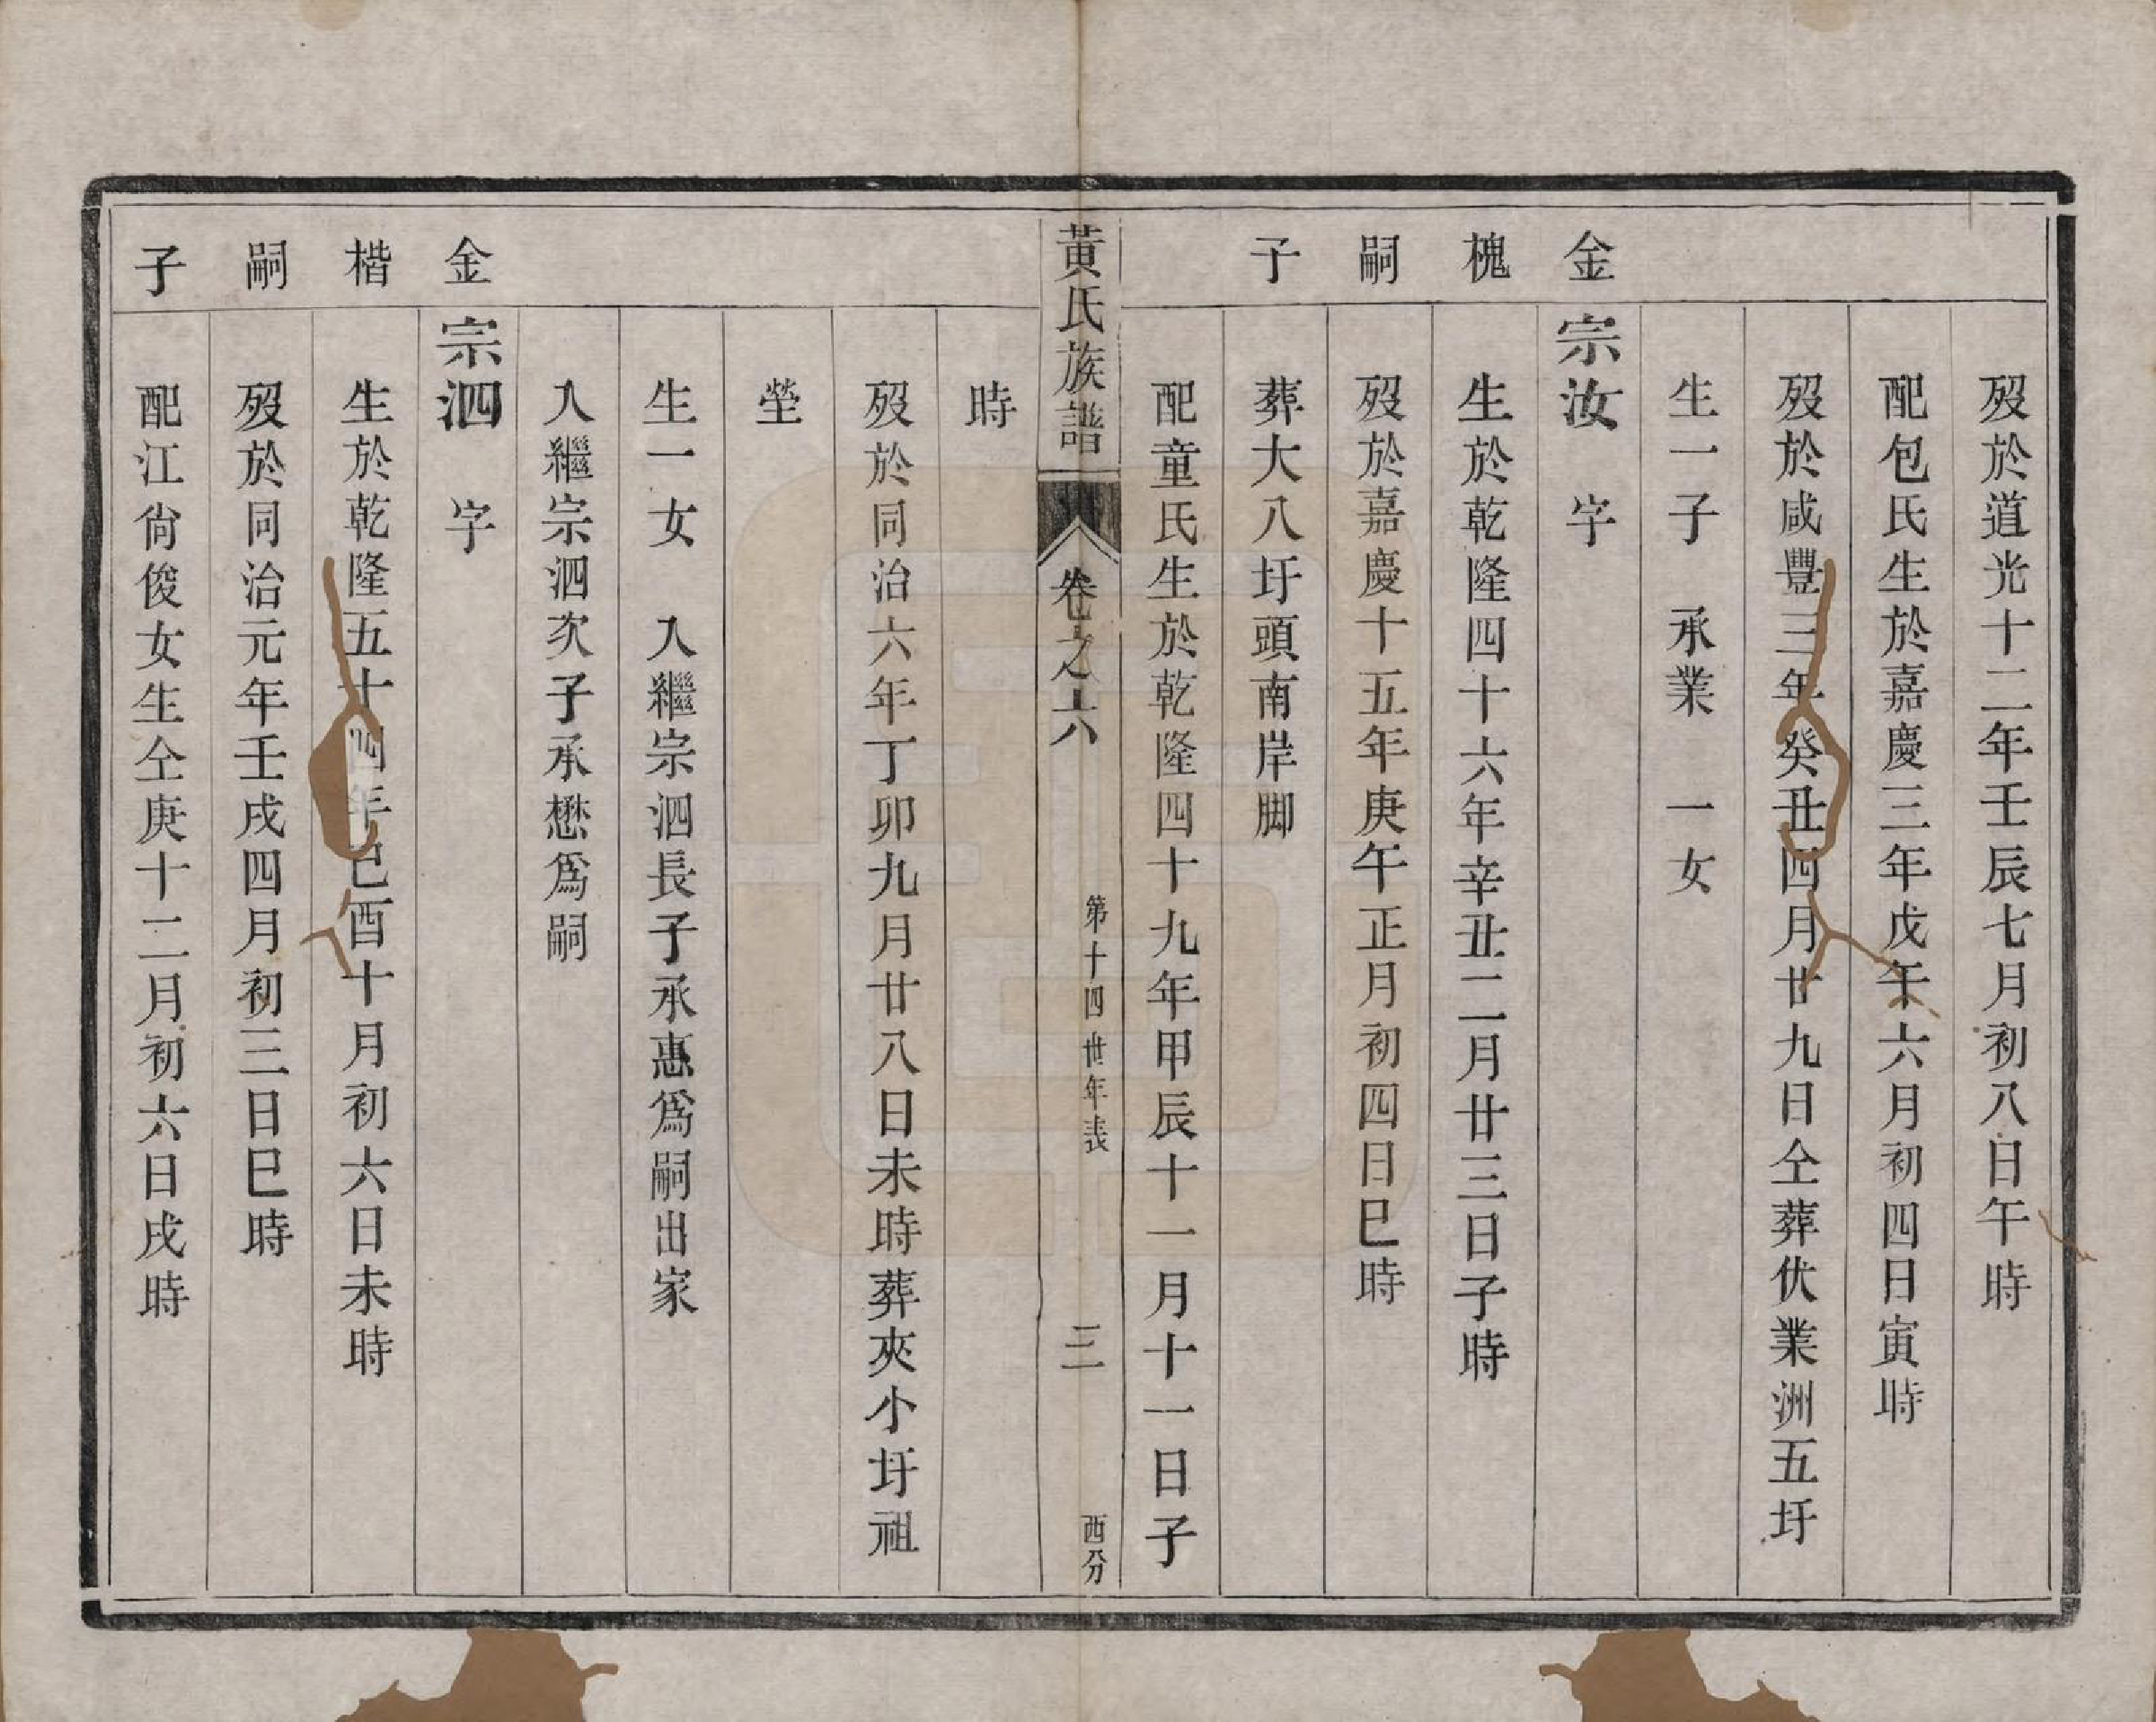 歿於道光十二年壬辰七月初八日午時
配包氏生於嘉慶三年戊午六月初四日寅時
歿於咸豐三年癸丑四月廿九日仝葬伏業洲五圩
生一子 承業 一女
金 宗汝 字
槐 生於乾隆四十六年辛丑二月廿三日子時
嗣 歿於嘉慶十五年庚午正月初四日巳時
子 葬大八圩頭南岸脚
配童氏生於乾隆四十九年甲辰十一月十一日子
黃氏族譜 卷之六 第十四世年表 三 西分
時
歿於同治六年丁卯九月廿八日未時葬夾小圩祖
塋
生一女 入繼宗泗長子承惠爲嗣出家
入繼宗泗次子承懋爲嗣
金 宗泗 字
楷 生於乾隆五十四年己酉十月初六日未時
嗣 歿於同治元年壬戌四月初三日巳時
子 配江尙俊女生仝庚十二月初六日戌時